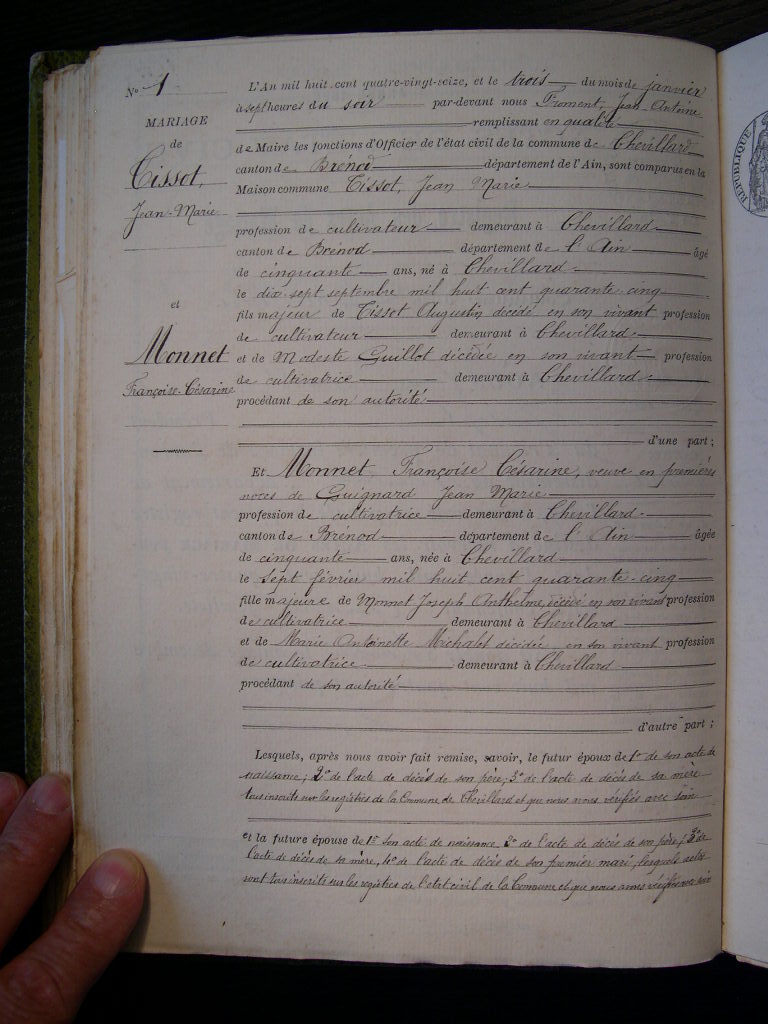 No 1
MARIAGE
de
Tissot,
Jean-Marie
et
Monnet
Françoise-Césarine
L'An mil huit cent quatre-vingt-seize, et le trois du mois de janvier
à sept heures du soir par-devant nous Froment, Jean-Antoine
remplissant en qualité
de Maire les fonctions d'Officier de l'état civil de la commune de Chevillard
canton de Brénod département de l'Ain, sont comparus en la
Maison commune Tissot, Jean Marie
profession de cultivateur demeurant à Chevillard
canton de Brénod département de l'Ain âgé
de cinquante ans, né à Chevillard
le dix sept septembre mil huit cent quarante cinq
fils majeur de Tissot Augustin décédé en son vivant profession
de cultivateur demeurant à Chevillard
et de Modeste Guillot décédée en son vivant profession
de cultivatrice demeurant à Chevillard
procédant de son autorité
d'une part ;
Et Monnet Françoise Césarine, veuve en premières
noces de Guignard Jean Marie
profession de cultivatrice demeurant à Chevillard
canton de Brénod département de l'Ain âgée
de cinquante ans, née à Chevillard
le sept février mil huit cent quarante-cinq
fille majeure de Monnet Joseph Anthelme, décédé en son vivant profession
de cultivatrice demeurant à Chevillard
et de Marie Antoinette Michalet décédée en son vivant profession
de cultivatrice demeurant à Chevillard
procédant de son autorité
d'autre part ;
Lesquels, après nous avoir fait remise, savoir, le futur époux de 1° de son acte de
naissance ; 2° de l'acte de décès de son père ; 3° de l'acte de décès de sa mère
tous inscrits sur les registres de la Commune de Chevillard et que nous avons vérifiés avec soin
et la future épouse de 1° son acte de naissance 2° de l'acte de décès de son père ; 3° de
l'acte de décès de sa mère, 4° de l'acte de décès de son premier mari, lesquels actes
sont tous inscrits sur les registres de l'état civil de la Commune et que nous avons vérifiés avec soin
RÉPUBLIQUE